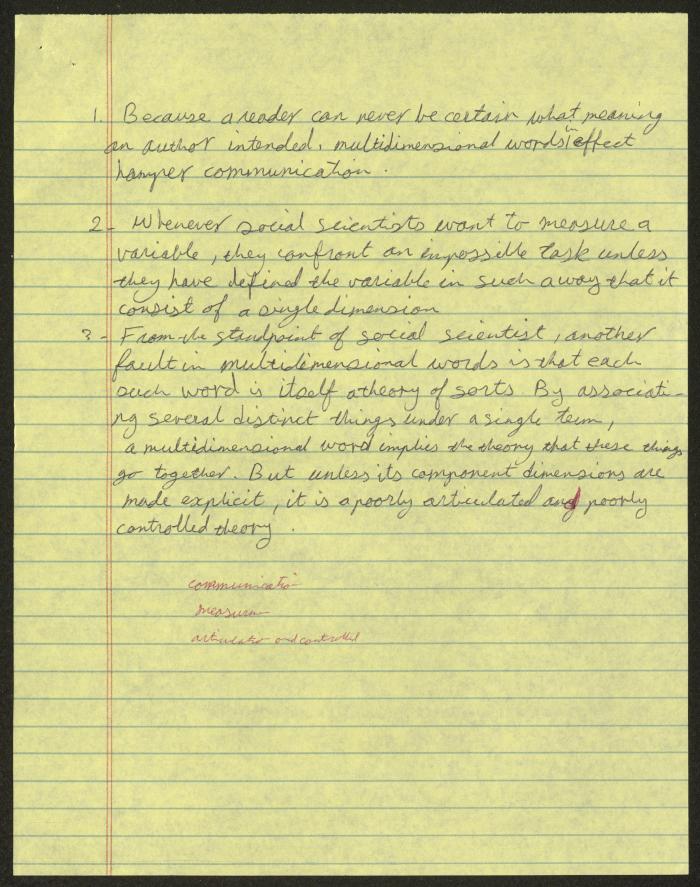 1. Because a reader can never be certain what meaning
an author intended, multidimensional words in effect
hamper communication.
2- Whenever social scientists want to measure a
variable, they confront an impossible task unless
they have defined the variable in such a way that it
consist of a single dimension
3- From the standpoint of social scientist, another
fault in multidimensional words is that each
such word is itself a theory of sorts. By associati-
ng several distinct things under a single term,
a multidimensional word implies the theory that these things
go together. But unless its component dimensions are
made explicit, it is a poorly articulated and poorly
controlled theory.
communicatio
measurm
articulatio and controlled